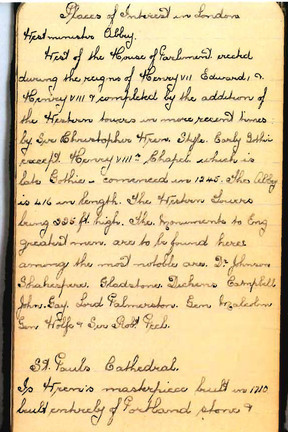 Places of Interest in London
Westminster Abbey.
West of the House of Parliment erected
during the reigns of Henry VII Edward, 1 &
Henry VIII & completed by the addition of
the Western towers in more recent times
by Sir Christopher Wren. Style. Early Gothic
except. Henry VIII th Chapel which is
late Gothic - comenced in 1245. The Abbey
is 416 in length. The Western Towers
being 225 ft. high. The. Monuments to Eng
greatest men. are to be found here
among the most notable are. Dr Johnson
Shakespere. Gladstone. Dickens Campbell
John. Gay. Lord Palmerston. Gen Malcolm
Gen Wolfe & Sir Robt. Peel.
St. Pauls Cathedral.
Is Wren's masterpiece built in 1710
built entirely of Portland stone &